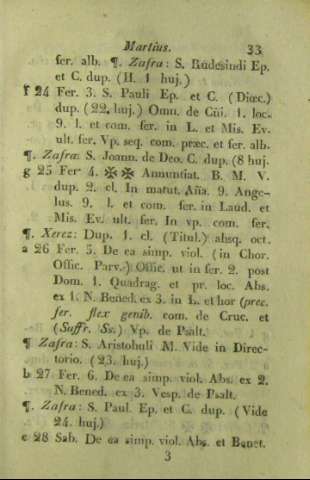 Martius. 33
fer. alb. ¶. Zafra: S. Rudesindi Ep.
et C. dup. (H. 1 huj.)
f 24 Fer. 3. S. Pauli Ep. et C. (Diœc.)
dup. (22. huj.) Omn. de Cñi. 1. loc.
9. l. et com. fer. in L. et Mis. Ev.
ult. fer. Vp. seq. com. præc. et fer. alb.
¶. Zafra: S. Joann. de Deo. C. dup. (8 huj.
g 25 Fer. 4. ✠ ✠ Annuntiat. B. M. V.
dup. 2. cl. In matut. Aña. 9. Ange-
lus. 9. l. et com. fer. in Laud. et
Mis. Ev. ult. fer. In vp. com. fer.
¶. Xerez: Dup. 1. cl. (Titul.) absq. oct.
a 26 Fer. 5. De ea simp. viol. (in Chor.
Offic. Parv.) Offic. ut in fer. 2. post
Dom. 1. Quadrag. et pr. loc. Abs.
ex 1. N. Bened. ex 3. in L. et hor (prec.
fer. flex genib. com. de Cruc. et
(Suffr. Ss.) Vp. de Psalt.
¶ Zafra: S. Aristobuli M. Vide in Direc-
torio. (23. huj.)
b 27 Fer. 6. De ea simp. viol. Abs. ex 2.
N. Bened. ex 3. Vesp. de Psalt.
¶. Zafra: S. Paul. Ep. et C. dup. (Vide
24. huj.)
c 28 Sab. De ea simp. viol. Abs. et Benet.
3